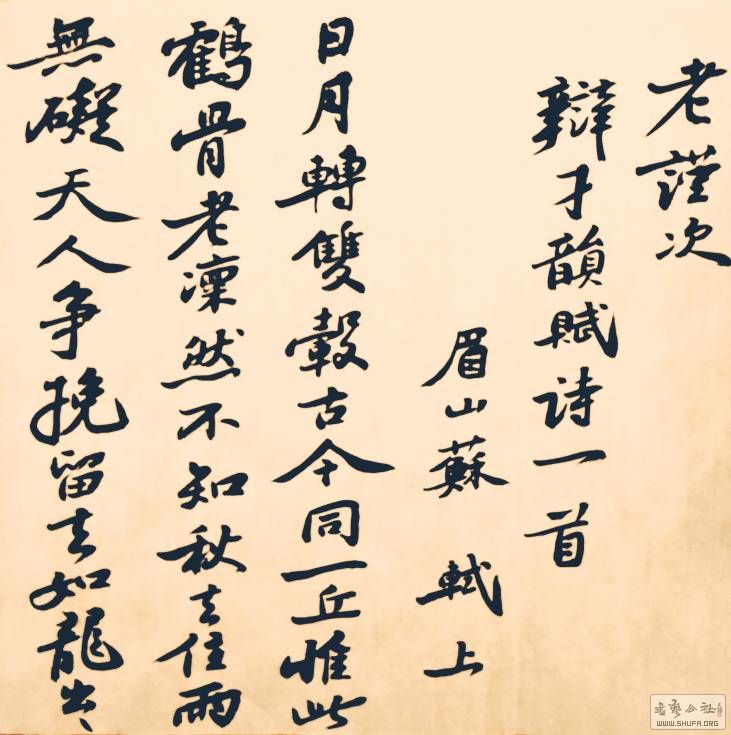 老謹次
辯才韻賦詩一首
眉山蘇軾上
日月轉雙轂古今同一丘惟此
鶴骨老凜然不知秋去住兩
無礙天人爭挽留去如龍出
書藝公社
WWW.SHUFA.ORG